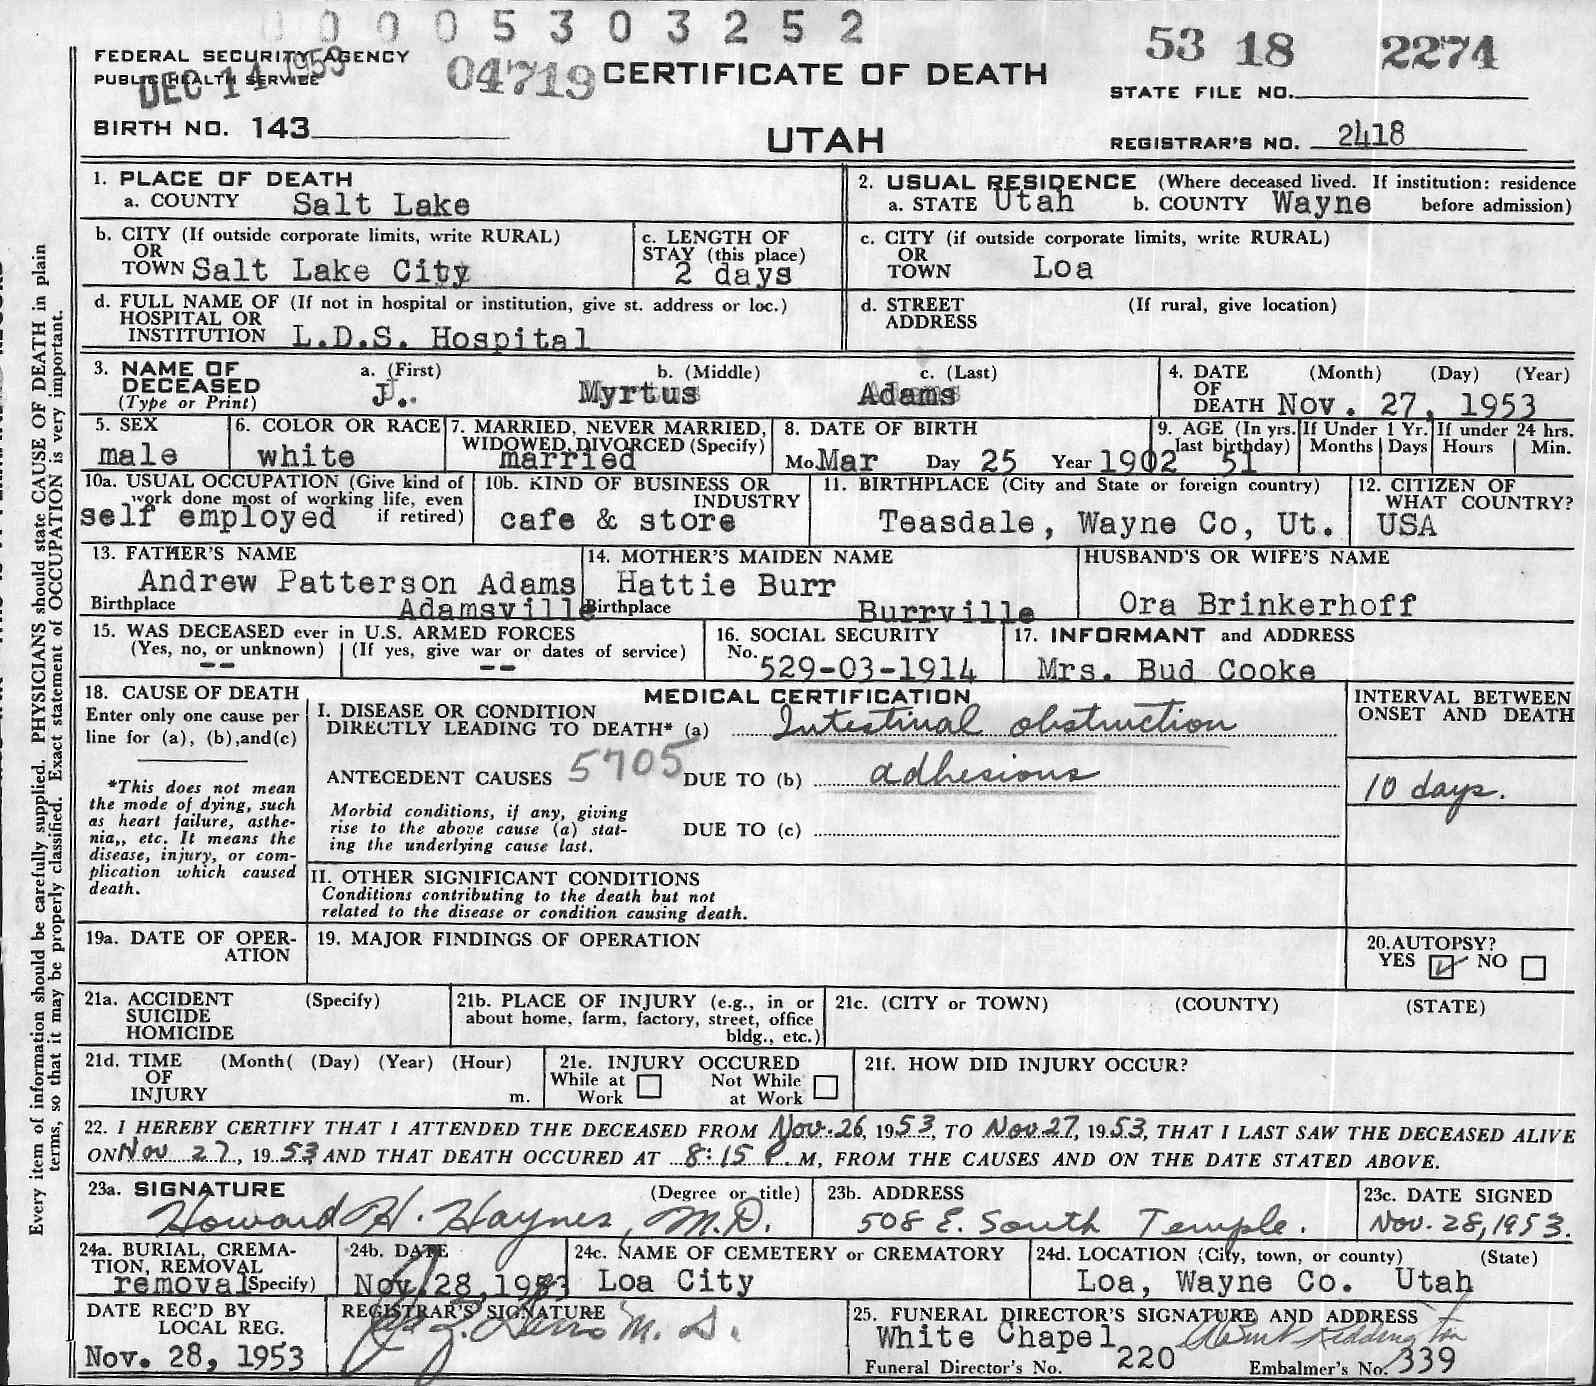 0005303252
FEDERAL SECURITY AGENCY
PUBLIC HEALTH SERVICE
DEC 14 1953
04719
CERTIFICATE OF DEATH
53 18 2274
STATE FILE NO.
BIRTH NO. 143
UTAH
REGISTRAR'S NO. 2418
1. PLACE OF DEATH
a. COUNTY Salt Lake
2. USUAL RESIDENCE (Where deceased lived. If institution: residence before admission)
a. STATE Utah b. COUNTY Wayne
b. CITY (If outside corporate limits, write RURAL)
OR
TOWN Salt Lake City
c. LENGTH OF
STAY (this place)
2 days
c. CITY (if outside corporate limits, write RURAL)
OR
TOWN Loa
d. FULL NAME OF (If not in hospital or institution, give st. address or loc.)
HOSPITAL OR
INSTITUTION L.D.S. Hospital
d. STREET (If rural, give location)
ADDRESS
3. NAME OF
DECEASED
(Type or Print)
a. (First) b. (Middle) c. (Last)
J. Myrtus Adams
4. DATE (Month) (Day) (Year)
OF
DEATH Nov. 27, 1953
5. SEX
male
6. COLOR OR RACE
white
7. MARRIED, NEVER MARRIED,
WIDOWED, DIVORCED (Specify)
married
8. DATE OF BIRTH
Mo. Mar Day 25 Year 1902
9. AGE (In yrs.
last birthday)
51
If Under 1 Yr.
Months Days
If under 24 hrs.
Hours Min.
10a. USUAL OCCUPATION (Give kind of
work done most of working life, even
if retired)
self employed
10b. KIND OF BUSINESS OR
INDUSTRY
cafe & store
11. BIRTHPLACE (City and State or foreign country)
Teasdale, Wayne Co, Ut.
12. CITIZEN OF
WHAT COUNTRY?
USA
13. FATHER'S NAME
Andrew Patterson Adams
Birthplace Adamsville
14. MOTHER'S MAIDEN NAME
Hattie Burr
Birthplace Burrville
HUSBAND'S OR WIFE'S NAME
Ora Brinkerhoff
15. WAS DECEASED ever in U.S. ARMED FORCES
(Yes, no, or unknown) (If yes, give war or dates of service)
-- --
16. SOCIAL SECURITY
No. 529-03-1914
17. INFORMANT and ADDRESS
Mrs. Bud Cooke
18. CAUSE OF DEATH
Enter only one cause per
line for (a), (b),and(c)
*This does not mean
the mode of dying, such
as heart failure, asthe-
nia,, etc. It means the
disease, injury, or com-
plication which caused
death.
MEDICAL CERTIFICATION
I. DISEASE OR CONDITION
DIRECTLY LEADING TO DEATH* (a) Intestinal obstruction
ANTECEDENT CAUSES 5705 DUE TO (b) adhesions
Morbid conditions, if any, giving
rise to the above cause (a) stat-
ing the underlying cause last.
DUE TO (c)
INTERVAL BETWEEN
ONSET AND DEATH
10 days.
II. OTHER SIGNIFICANT CONDITIONS
Conditions contributing to the death but not
related to the disease or condition causing death.
19a. DATE OF OPER-
ATION
19. MAJOR FINDINGS OF OPERATION
20. AUTOPSY?
YES ☑ NO ☐
21a. ACCIDENT (Specify)
SUICIDE
HOMICIDE
21b. PLACE OF INJURY (e.g., in or
about home, farm, factory, street, office
bldg., etc.)
21c. (CITY or TOWN) (COUNTY) (STATE)
21d. TIME (Month( (Day) (Year) (Hour)
OF
INJURY m.
21e. INJURY OCCURED
While at Work ☐ Not While at Work ☐
21f. HOW DID INJURY OCCUR?
22. I HEREBY CERTIFY THAT I ATTENDED THE DECEASED FROM Nov. 26, 1953, TO Nov 27, 1953, THAT I LAST SAW THE DECEASED ALIVE
ON Nov 27, 1953 AND THAT DEATH OCCURED AT 8:15 P. M, FROM THE CAUSES AND ON THE DATE STATED ABOVE.
23a. SIGNATURE (Degree or title)
Howard H. Haynes, M.D.
23b. ADDRESS
508 E. South Temple.
23c. DATE SIGNED
Nov. 28, 1953.
24a. BURIAL, CREMA-
TION, REMOVAL
removal Specify)
24b. DATE
Nov. 28, 1953
24c. NAME OF CEMETERY or CREMATORY
Loa City
24d. LOCATION (City, town, or county) (State)
Loa, Wayne Co. Utah
DATE REC'D BY
LOCAL REG.
Nov. 28, 1953
REGISTRAR'S SIGNATURE
M. D.
25. FUNERAL DIRECTOR'S SIGNATURE AND ADDRESS
White Chapel
Funeral Director's No. 220 Embalmer's No. 339
Every item of information should be carefully supplied. PHYSICIANS should state CAUSE OF DEATH in plain
terms, so that it may be properly classified. Exact statement of OCCUPATION is very important.